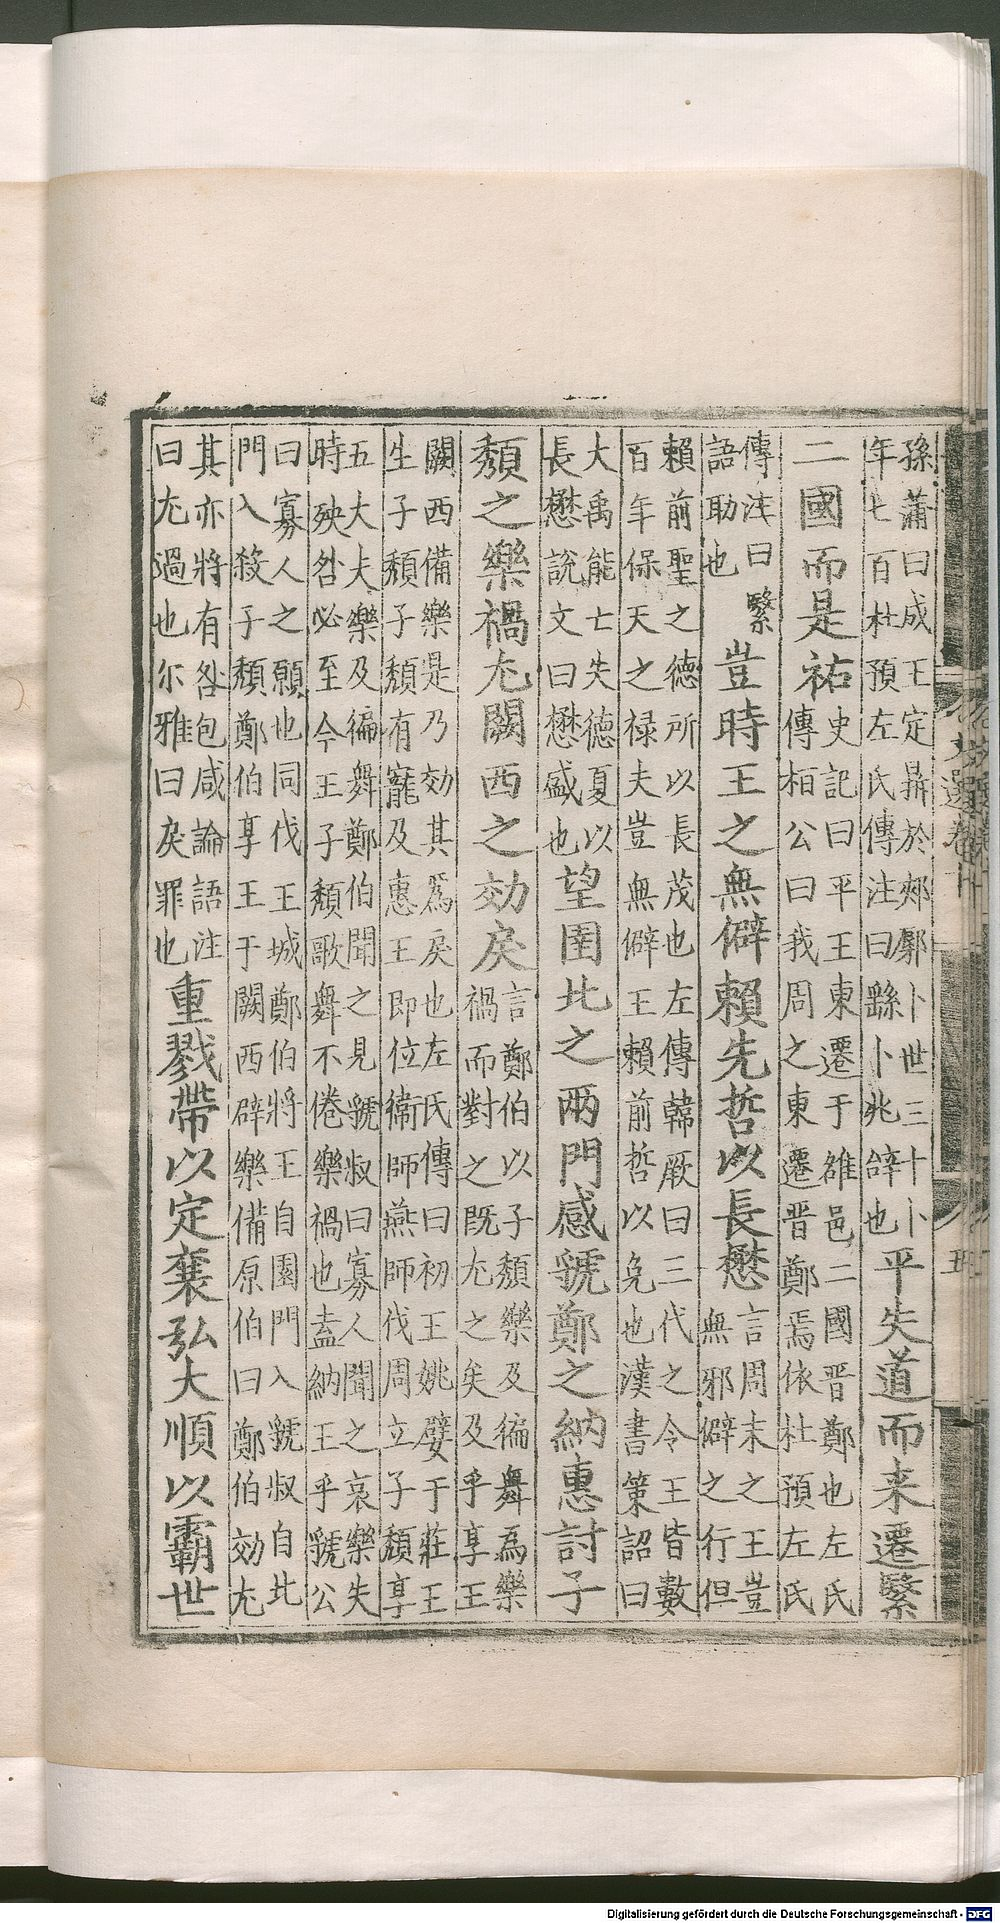 孫蒲曰成王定鼎於郟鄏卜世三十卜
年七百杜預左氏傳注曰繇卜兆辭也
平失道而来遷繄
二國而是祐
史記曰平王東遷于雒邑二國晉鄭也左氏
傳桓公曰我周之東遷晉鄭焉依杜預左氏
傳注曰繄
語助也
豈時王之無僻賴先哲以長懋
言周末之王豈
無邪僻之行但
賴前聖之德所以長茂也左傳韓厥曰三代之令王皆數
百年保天之禄夫豈無僻王賴前哲以免也漢書策詔曰
大禹能亡失德夏以
長懋説文曰懋盛也
望圉北之兩門感虢鄭之納惠討子
頹之樂禍尤闕西之効戾
言鄭伯以子頹樂及徧舞為樂
禍而對之既尤之矣及乎享王
闕西備樂是乃効其為戾也左氏傳曰初王姚嬖于莊王
生子頹子頹有寵及惠王即位衛師燕師伐周立子頹享
五大夫樂及徧舞鄭伯聞之見虢叔曰寡人聞之哀樂失
時殃咎必至今王子頹歌舞不倦樂禍也盍納王乎虢公
曰寡人之願也同伐王城鄭伯將王自圉門入虢叔自北
門入殺子頹鄭伯享王于闕西辟樂備原伯曰鄭伯効尤
其亦將有咎包咸論語注
曰尤過也尓雅曰戾罪也
重戮帶以定襄弘大順以霸世
文選卷十
五
Digitalisierung gefördert durch die Deutsche Forschungsgemeinschaft - DFG